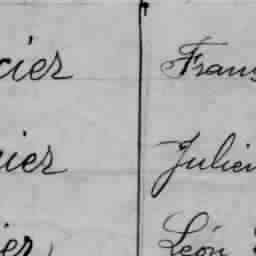 cier Frans
nier Julien
ier Léon